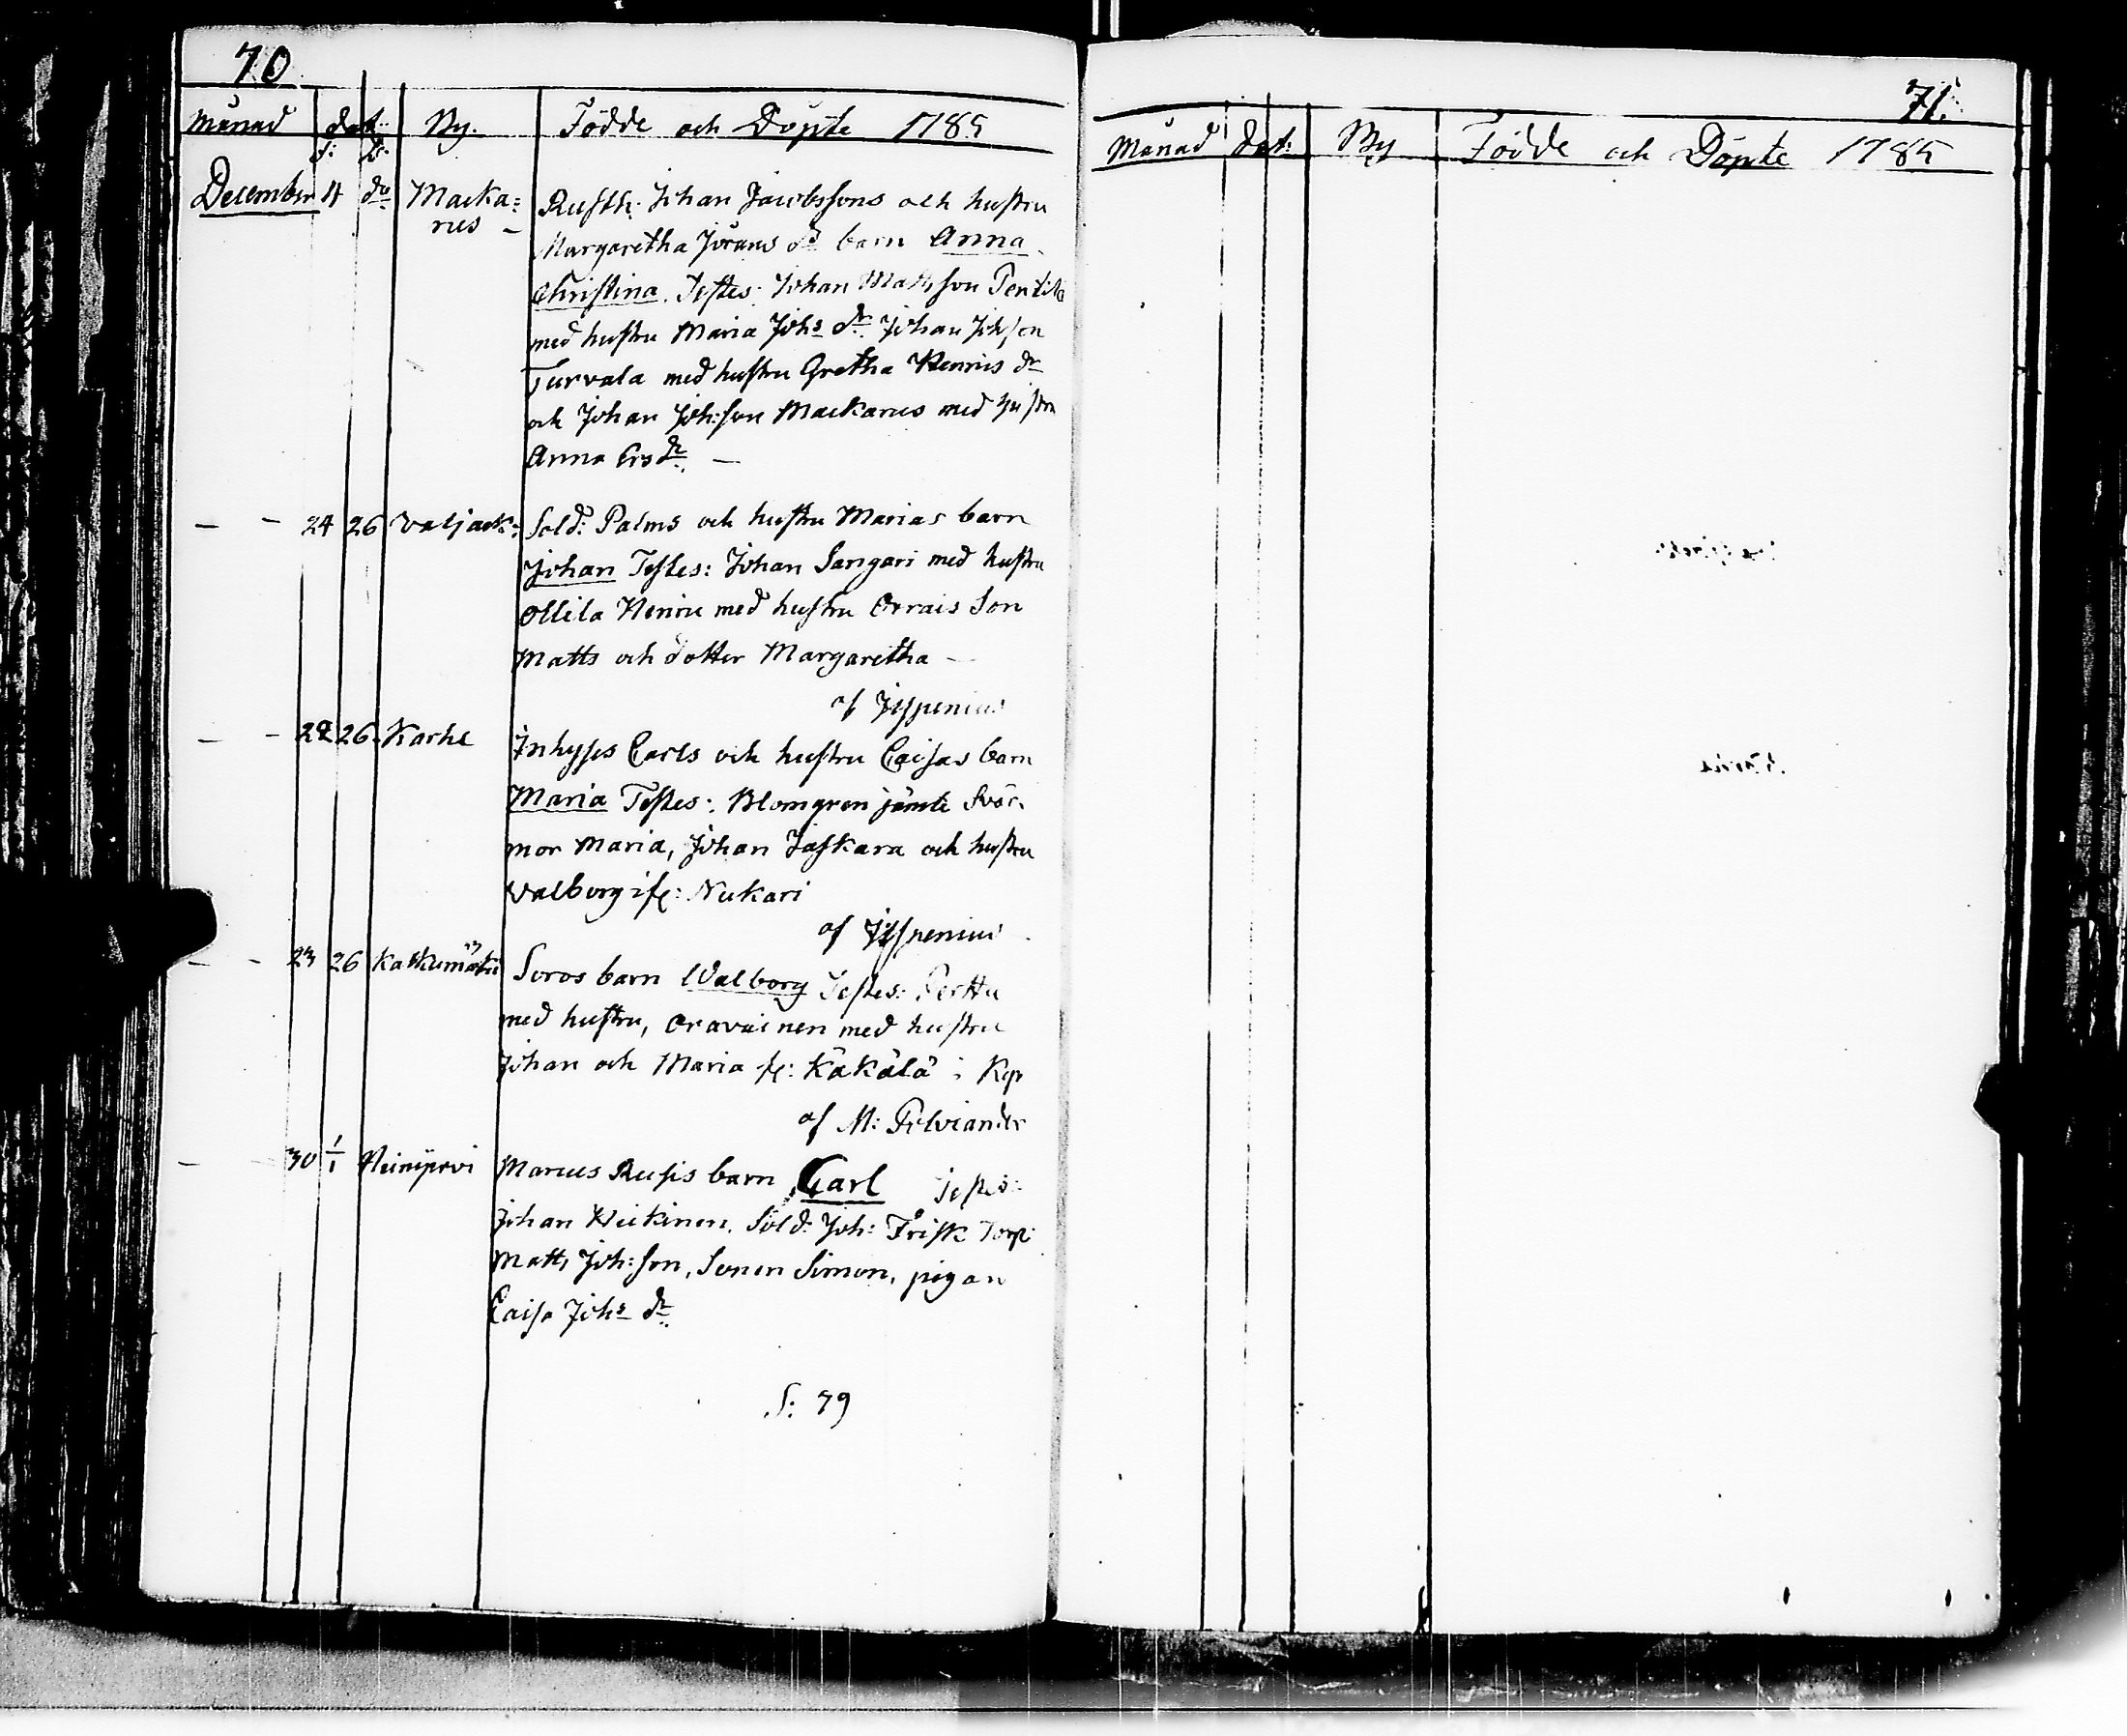 70
Månad dat: By. Födde och Döpte 1785
f: d:
December 4 do Macka=
rus
Rusth: Johan Jacobssons och hustru
Margaretha Jörans dr barn Anna
Christina. Testes: Johan Mattsson Pentilä
med hustru Maria Johs dr Johan Johson
Turvala med hustru Gretha Henris dr
och Johan Joh:son Mackarus med hustru
Anna Ers dr. —
— — 24 26 Valjack: Sold: Palms och hustru Marias barn
Johan Testes: Johan Sangari med hustru
Ollila Henric med hustru Orrais Son
Matts och dotter Margaretha —
af Jespenius
— — 22 26 Karhe Inhyses Carls och hustru Caisas barn
Maria Testes: Blomgren jämte Svär-
mor Maria, Johan Jaskara och hustru
Valborg ifr: Nukari
af Jespenius
— — 23 26 Soros barn Walborg Testes: Perttu
med hustru, Oravainen med hustru
Johan och Maria fr: Käkälä i Kyr
af M: Pelviander
— — 30 1/1 Heinijervi Marcus Rusis barn Carl Testes:
Johan Heikinen, Sold: Joh: Frisk Torp:
Matts Joh:son, Sonen Simon, pigan
Caisa Johs dr.
S: 79
71.
Månad dat: By Födde och Döpte 1785